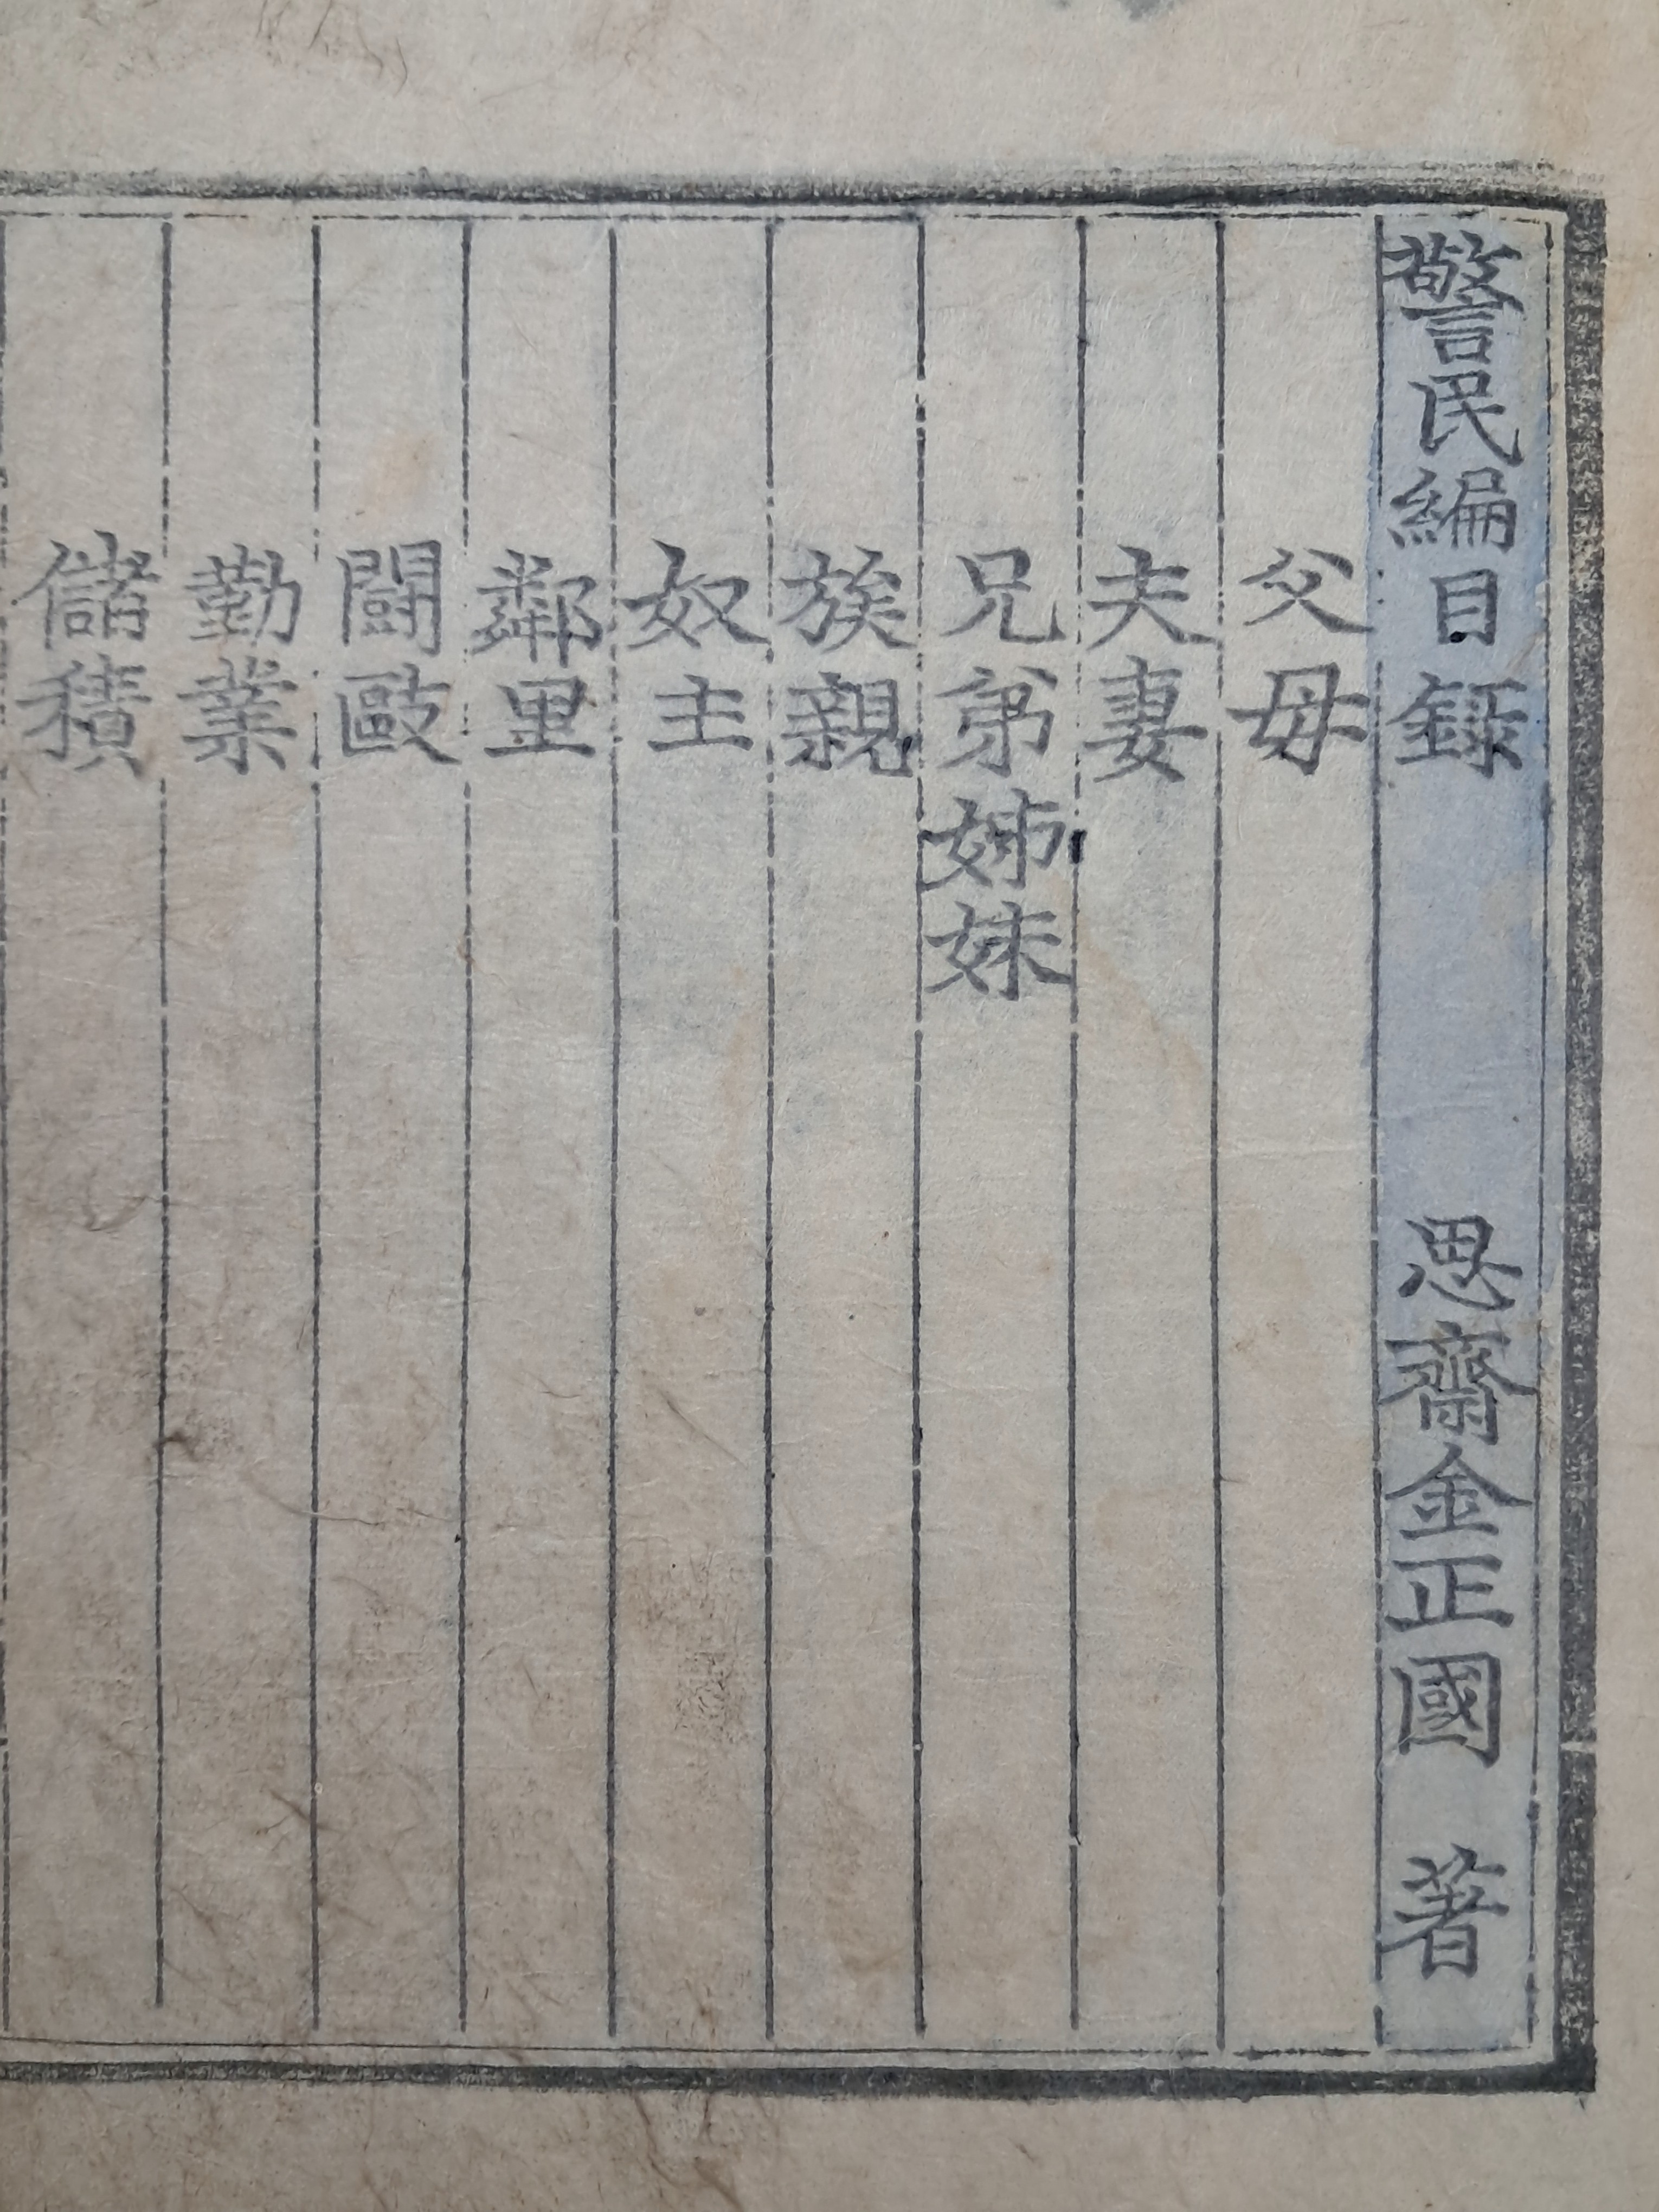 警民編目錄 思齋金正國 著
父母
夫妻
兄弟姊妹
族親
奴主
鄰里
鬪毆
勤業
儲積